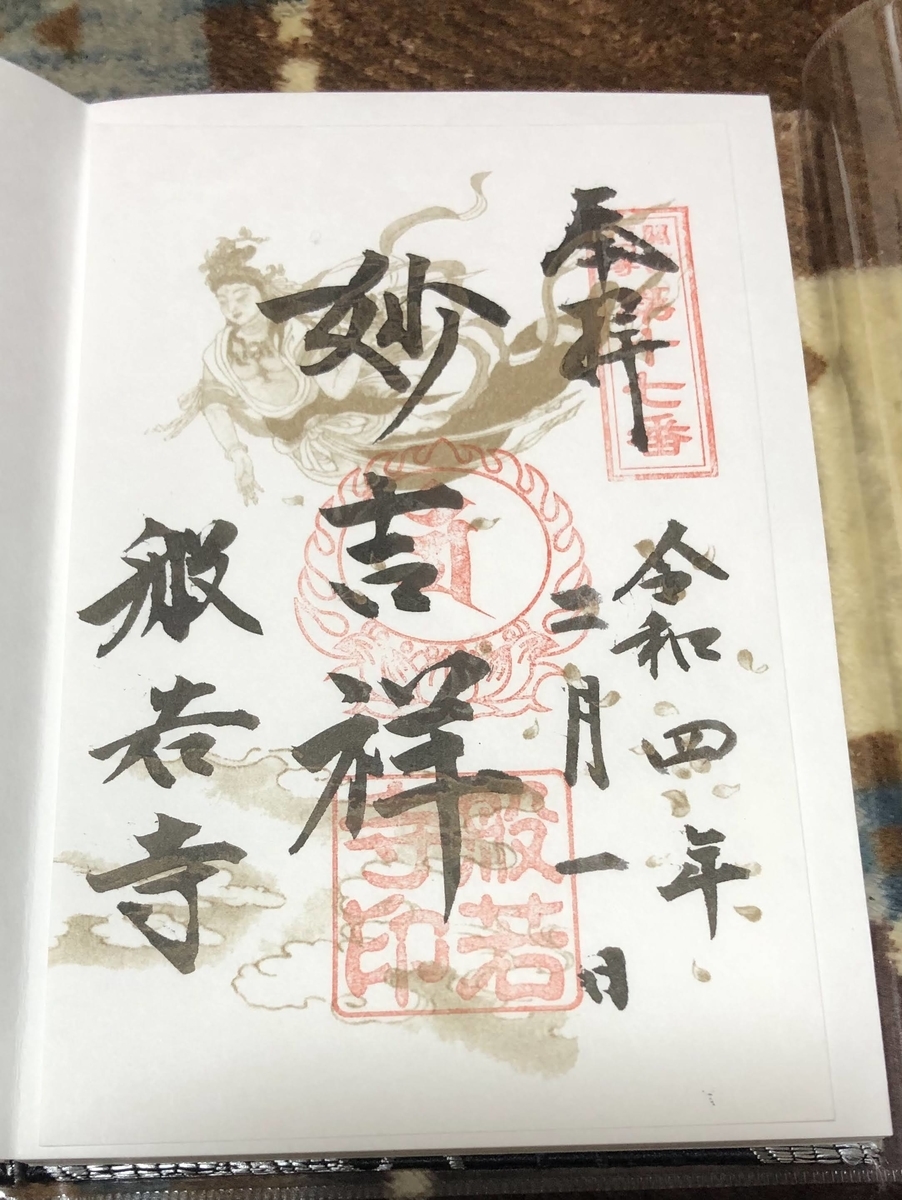 第十七番
奉拝
令和四年
二月一日
妙吉祥
般若
寺印
般若寺